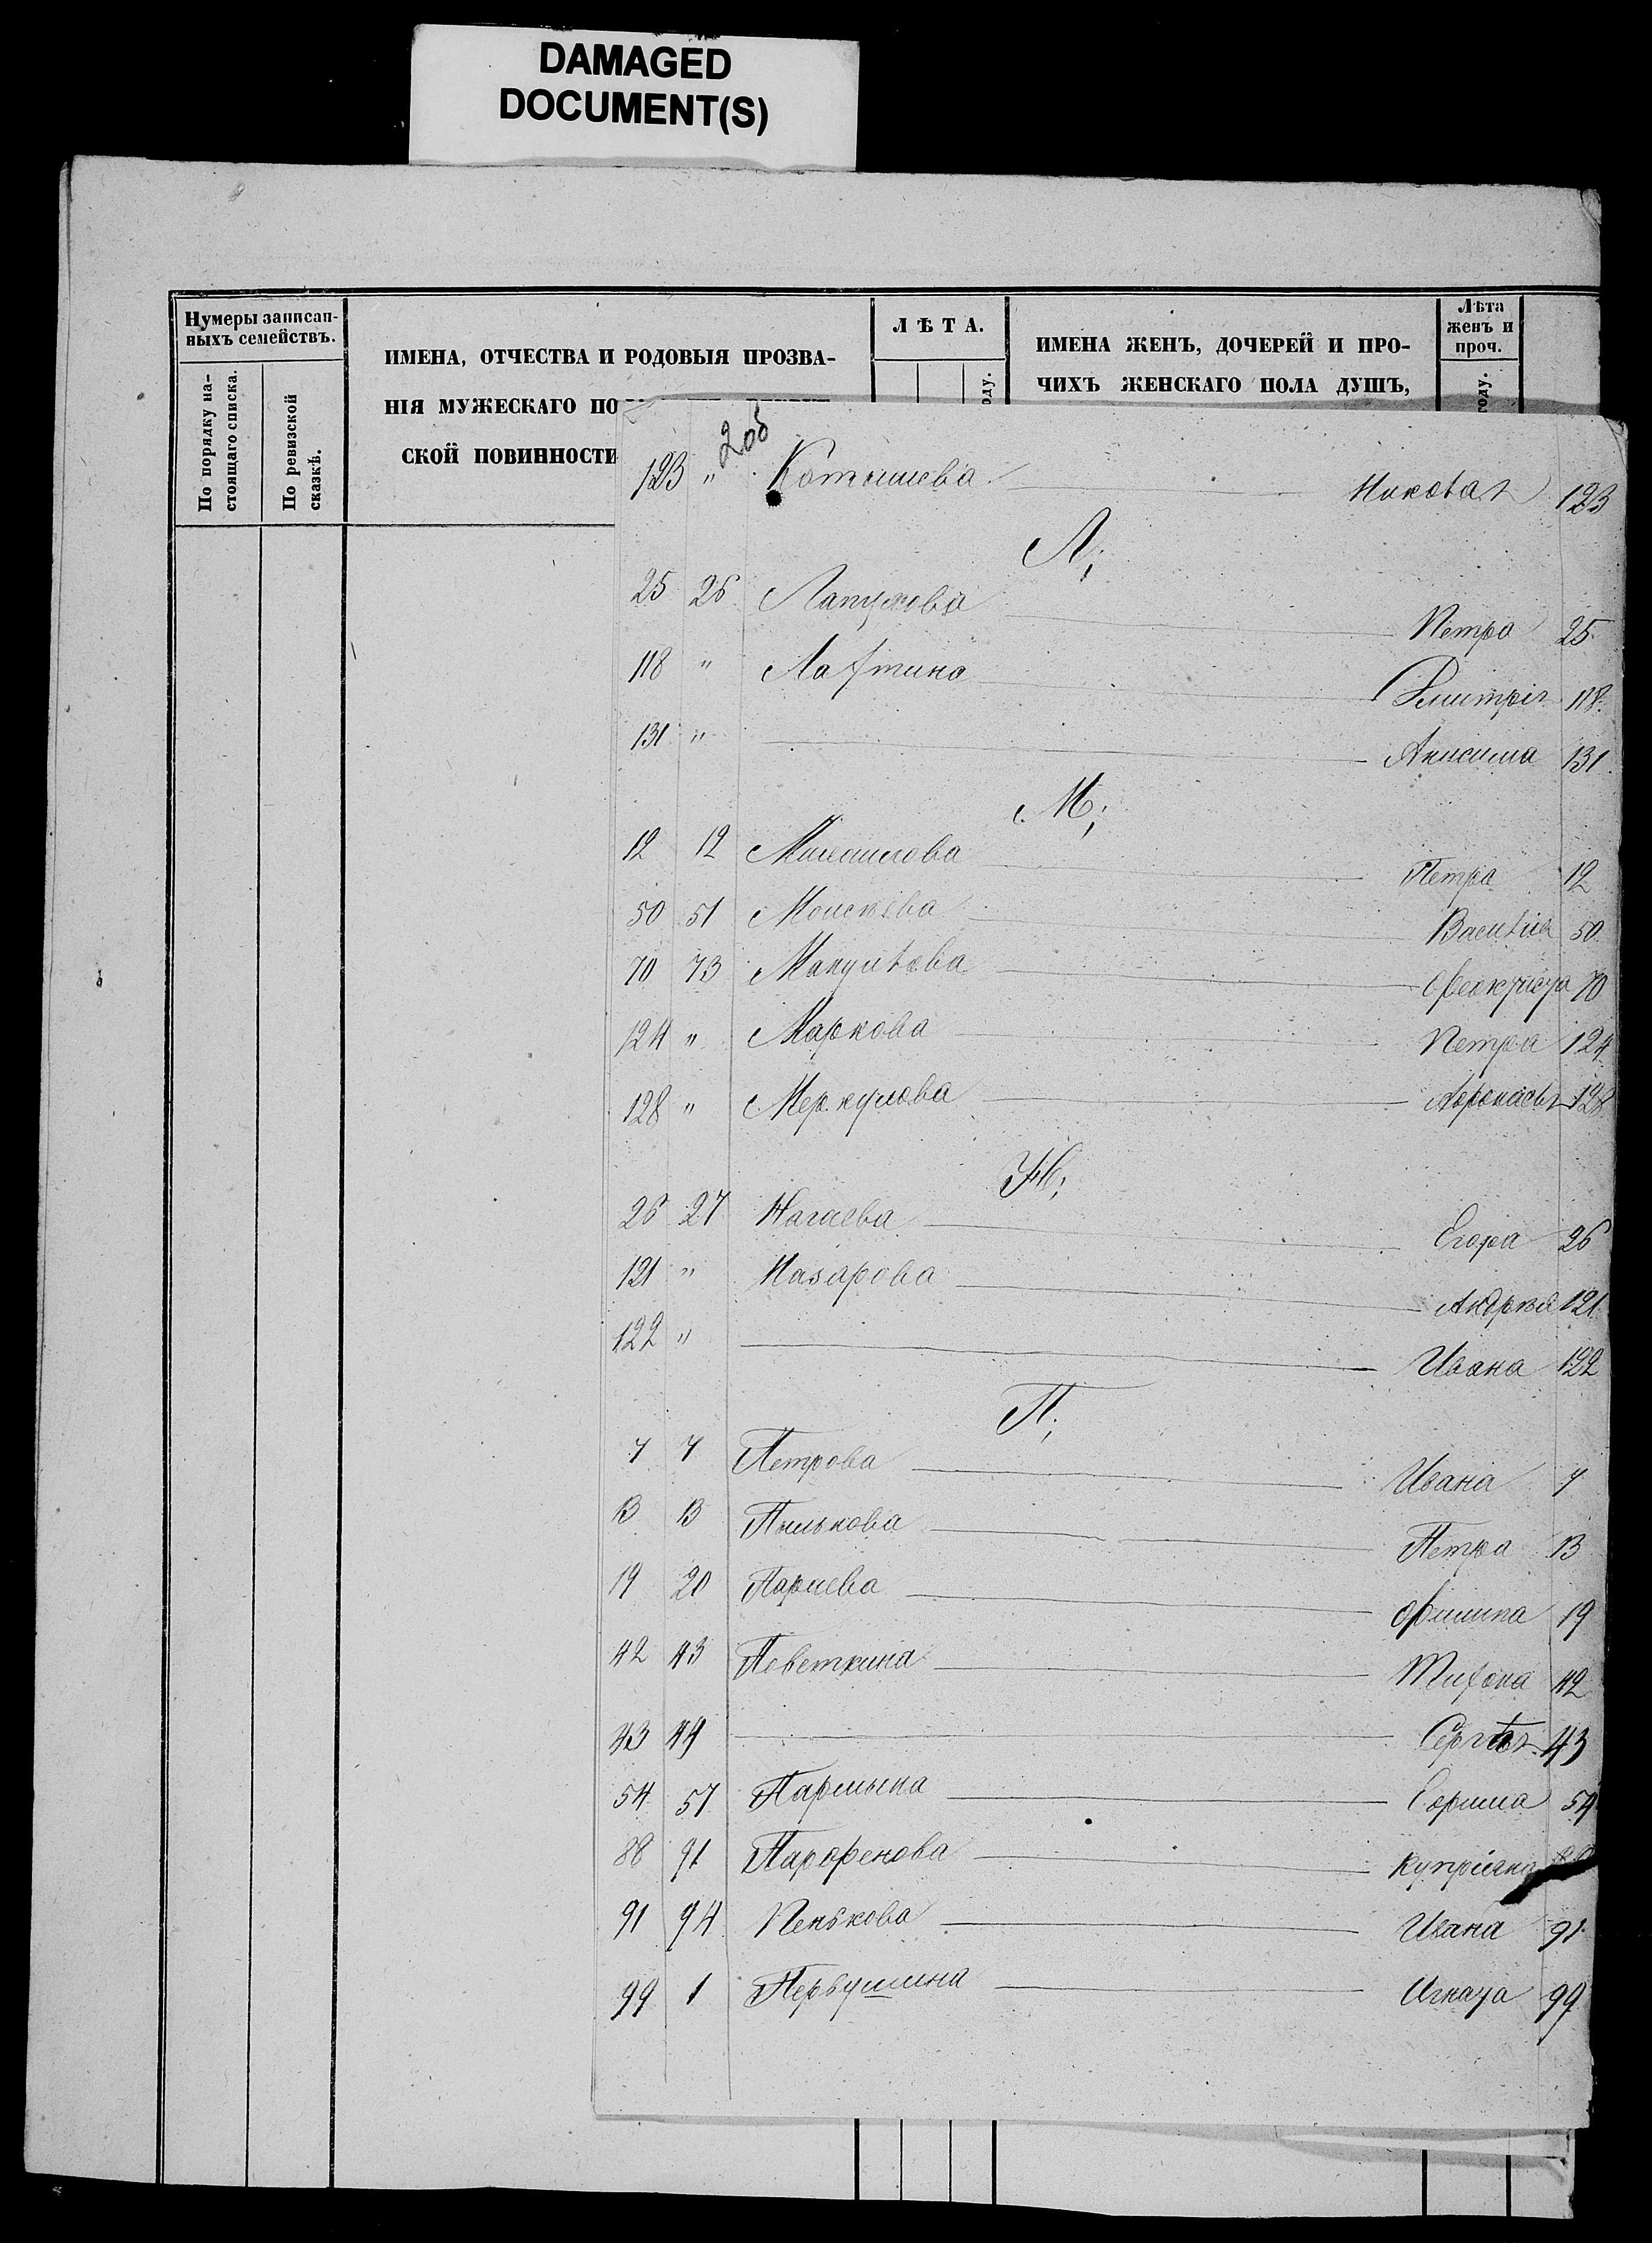 DAMAGED
DOCUMENT(S)
Нумеры записан-
ныхъ семействъ.
По порядку на-
стоящаго списка.
По ревизской
сказкѣ.
ИМЕНА, ОТЧЕСТВА И РОДОВЫЯ ПРОЗВА-
НІЯ МУЖЕСКАГО ПО
СКОЙ ПОВИННОСТИ
ЛѢТА.
оду.
ИМЕНА ЖЕНЪ, ДОЧЕРЕЙ И ПРО-
ЧИХЪ ЖЕНСКАГО ПОЛА ДУШЪ,
Лѣта
женъ и
проч.
году.
123 " Котышева Николая 123
Л;
25 26 Лапухова Петра 25
118 " Лахтина Дмитрія 118.
131 " Анисима 131.
М;
12 12 Михаилова Петра 12
50 51 Моисѣева Василія 50.
70 73 Мануилова Феоктиста 70
124 " Маркова Петра 124
128 " Меркулова Афонасья 128
Н;
26 27 Нагаева Егора 26
121 " Назарова Андрѣя 121.
122 " Ивана 122
П;
7 7 Петрова Ивана 7
13 13 Пыльнова Петра 13
19 20 Филипа 19
42 43 Поветкина Тихона 42
43 44 Сергѣя 43
54 57 54
88 91 Парфенова Купріяна
91 94 Пенькова Ивана 91.
99 1 Первушина Игната 99